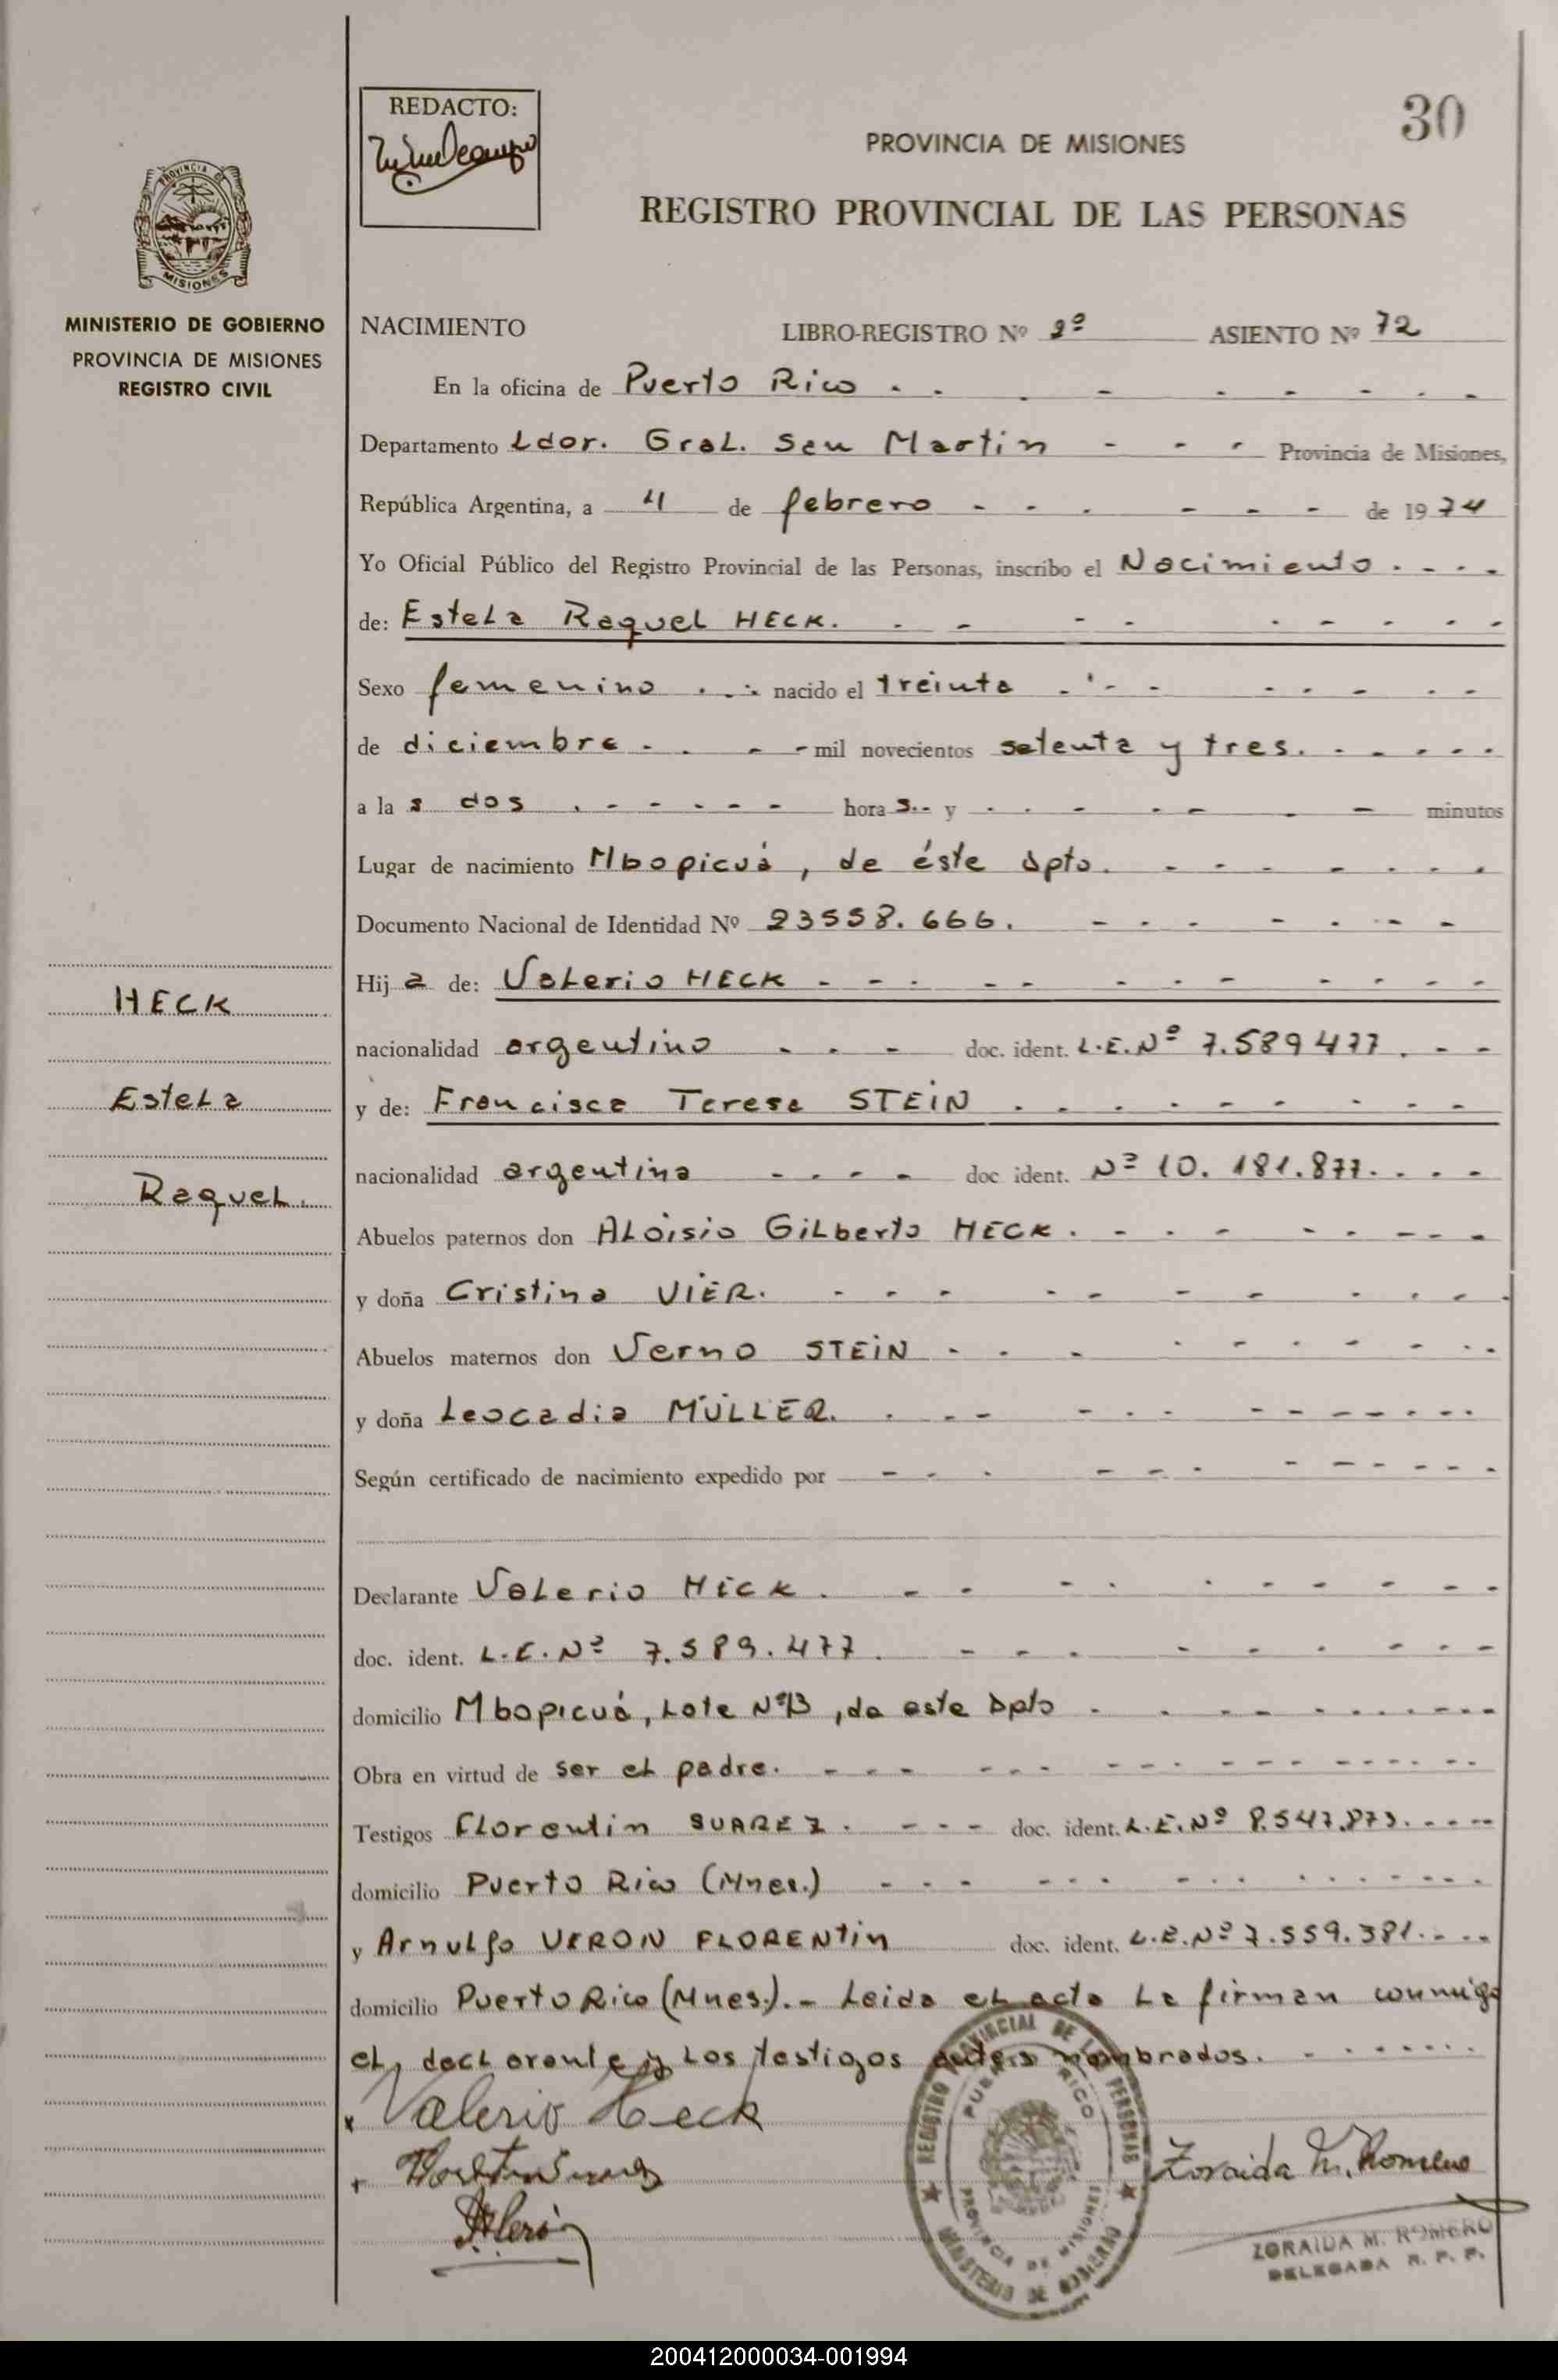 REDACTO:
30
PROVINCIA DE MISIONES
REGISTRO PROVINCIAL DE LAS PERSONAS
PROVINCIA DE
MISIONES
MINISTERIO DE GOBIERNO
PROVINCIA DE MISIONES
REGISTRO CIVIL
NACIMIENTO LIBRO-REGISTRO Nº ASIENTO Nº 72
En la oficina de Puerto Rico
Departamento Ldor. Gral. San Martin Provincia de Misiones,
República Argentina, a 4 de febrero de 1974
Yo Oficial Público del Registro Provincial de las Personas, inscribo el Nacimiento
de: Estela Raquel HECK.
Sexo femenino nacido el treinta
de diciembre mil novecientos setenta y tres.
a la s dos hora s y minutos
Lugar de nacimiento Mbopicuá, de éste Dpto.
Documento Nacional de Identidad Nº 23558.666.
Hij a de: Valerio HECK
nacionalidad argentino doc. ident. L.E.Nº 7.589477.
y de: Francisca Teresa STEiN
nacionalidad argentina doc ident. Nº 10.181.877.
Abuelos paternos don ALoisio GiLberto HECK.
y doña Cristina ViER.
Abuelos maternos don Verno STEiN
y doña Leocadia MÜLLER.
Según certificado de nacimiento expedido por
Declarante Valerio HECK.
doc. ident. L.E.Nº 7.589.477.
domicilio Mbopicuá, Lote Nº13, de este Dpto
Obra en virtud de ser el padre.
Testigos Florentin SUAREZ. doc. ident. L.E.Nº 8.547.873.
domicilio Puerto Rico (Mnes.)
y Arnulfo VERON FLORENTin doc. ident. L.E.Nº 7.559.381.
domicilio Puerto Rico (Mnes.).- Leida el acta la firman conmigo
el declarante y los testigos antes nombrados.
Valerio Heck
Zoraida M. Romero
ZORAIDA M. ROMERO
DELEGADA R. P. P.
REGISTRO PROVINCIAL DE LAS PERSONAS
PUERTO RICO
PROVINCIA DE MISIONES
MINISTERIO DE GOBIERNO
HECK
Estela
Raquel.
200412000034-001994